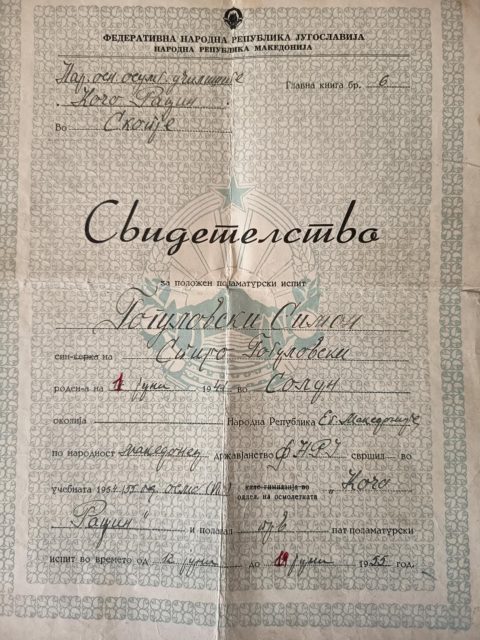 ФЕДЕРАТИВНА НАРОДНА РЕПУБЛИКА ЈУГОСЛАВИЈА
НАРОДНА РЕПУБЛИКА МАКЕДОНИЈА
Нар. осн. осум. училиште
Главна книга бр. 6
„Кочо Рацин“
Во Скопје
Свидетелство
за положен поламатурски испит
Гогуловски Симон
син-ќерка на Спиро Гогуловски
роден-а на 1 јуни 1941 во Солун
околија Народна Република Ег. Македонија
по народност македонец државјанство ФНРЈ свршил во
учебната 1954/55 год осмо (VIII) кл. гимназија во
оддел. на осмолетката „Кочо
Рацин“ и полагал прв пат поламатурски
испит во времето од 12 јуни до 19 јуни 1955 год.